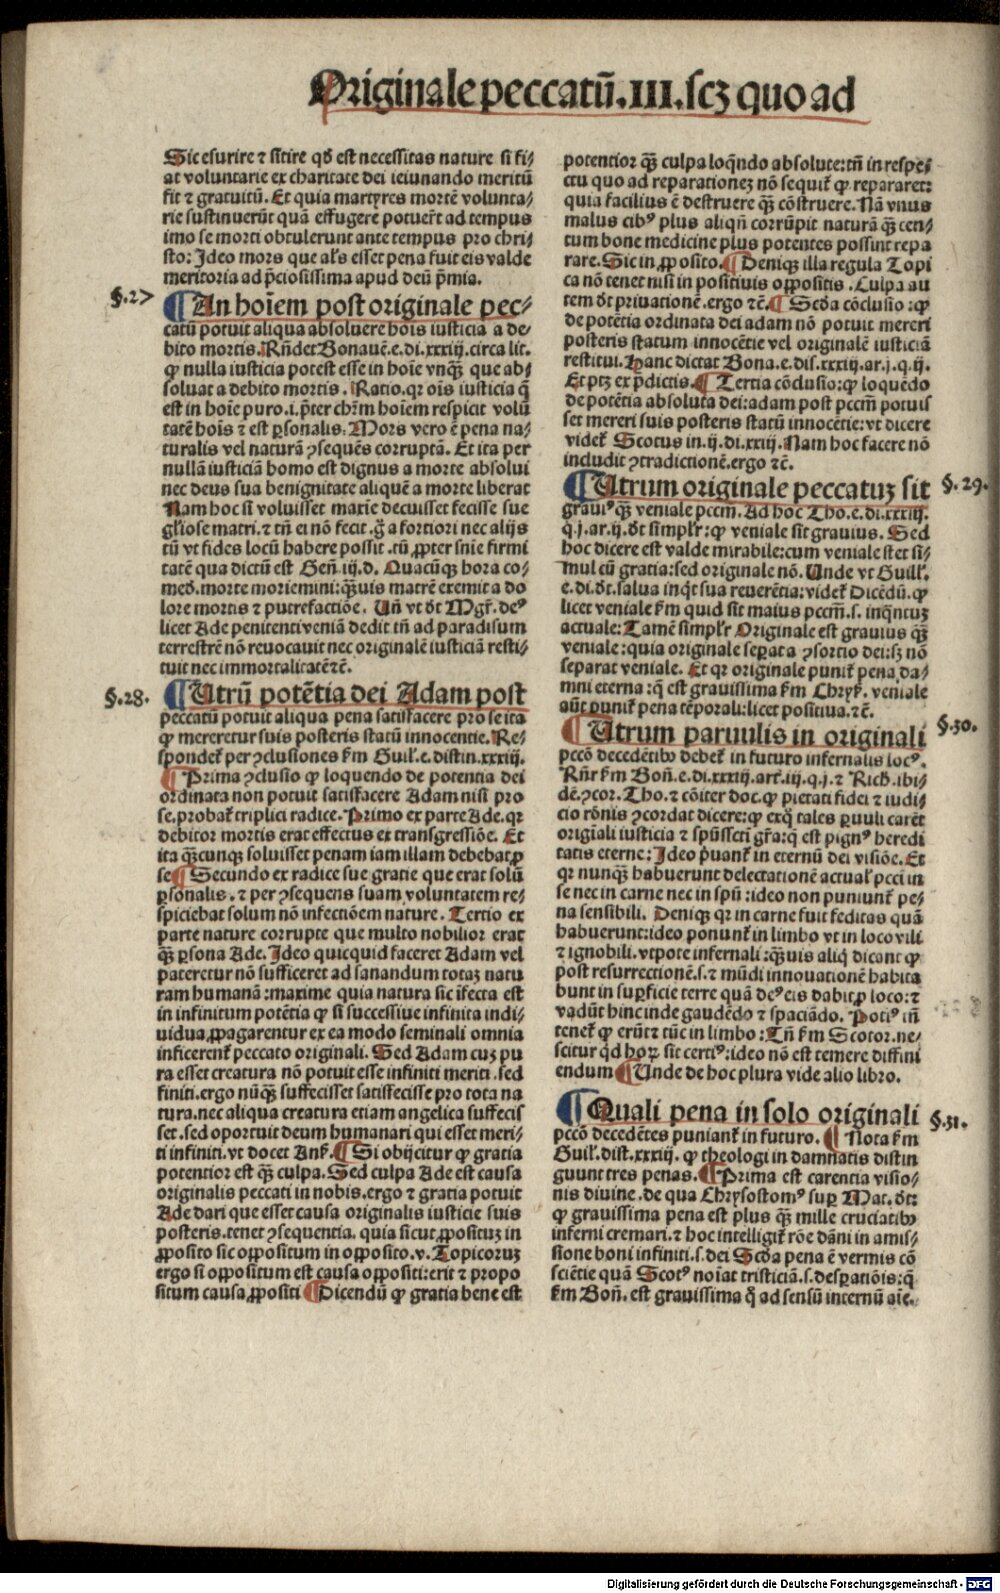 Originale peccatū.III.scꝫ quo ad
Sic esurire ⁊ sitire qđ est necessitas nature si fi⸗
at voluntarie ex charitate dei ieiunando meritū
fit ⁊ gratuitū. Et quia martyres mortē volunta⸗
rie sustinuerūt quā effugere potuert̄ ad tempus
imo se morti obtulerunt ante tempus pro chri⸗
sto: Ideo mors que als̄ esset pena fuit eis valde
meritoria ad p̄ciosissima apud deū p̄mia.
§.27
¶ An hoīem post originale pec⸗
catū potuit aliqua absoluere hoīs iusticia a de⸗
bito mortis. Rn̄det Bonauē.e.di.xxxiij.circa lit.
ꝙ nulla iusticia potest esse in hoīe vnqꝫ que ab⸗
soluat a debito mortis. Ratio.qꝛ oīs iusticia q̄
est in hoīe puro.i.p̄ter chr̄m hoīem respicit volū
tatē hoīs ⁊ est ꝑsonalis. Mors vero ē pena na⸗
turalis vel naturā ꝯsequēs corruptā. Et ita per
nullā iusticiā homo est dignus a morte absolui
nec deus sua benignitate aliquē a morte liberat
Nam hoc si voluisset maxīe decuisset fecisse sue
gl̄iose matri. ⁊ tn̄ ei nō fecit. g̃ a fortiori nec alijs
tū vt fides locū habere possit. tū ꝓpter snīe firmi
tatē qua dictū est Gen̄.iij.d. Quacūqꝫ hora co⸗
med̄. morte moriemini: qꝫuis matrē exemit a do
lore mortis ⁊ putrefactiōe. Un̄ vt dt̄ Mgr̄. deꝰ
licet Ade penitenti veniā dedit tn̄ ad paradisum
terrestrē nō reuocauit nec originalē iusticiā resti⸗
tuit nec immortalitatē ⁊c̄.
§.28.
¶ Utrū potētia dei Adam post
peccatū potuit aliqua pena satisfacere pro se ita
ꝙ mereretur suis posteris statū innocentie. Re⸗
spondet̄ per ꝯclusiones fm̄ Guil̄.e.distin.xxxiij.
¶ Prima ꝯclusio ꝙ loquendo de potentia dei
ordinata non potuit satisfacere Adam nisi pro
se. probat̄ triplici radice. Primo ex parte Ade. qꝛ
debitor mortis erat effectus ex transgressiōe. Et
ita qꝫcunqꝫ soluisset penam iam illam debebat ꝓ
se ¶ Secundo ex radice sue gratie que erat solū
ꝑsonalis. ⁊ per ꝯsequens suam voluntatem re⸗
spiciebat solum nō infectiōem nature. Tertio ex
parte nature corrupte que multo nobilior erat
qꝫ ꝑsona Ade. Ideo quicquid faceret Adam vel
pateretur nō sufficeret ad sanandum totaꝫ natu
ram humanā: maxime quia natura sic īfecta est
in infinitum potētia ꝙ si successiue infinita indi⸗
uidua ꝓpagarentur ex ea modo seminali omnia
inficerent̄ peccato originali. Sed Adam cuꝫ pu
ra esset creatura nō potuit esse infiniti meriti. sed
finiti. ergo nūqꝫ suffecisset satisfecisse pro tota na
tura. nec aliqua creatura etiam angelica suffecis
set. sed oportuit deum humanari qui esset meri⸗
ti infiniti. vt docet Ans̄. ¶ Si obijcitur ꝙ gratia
potentior est qꝫ culpa. Sed culpa Ade est causa
originalis peccati in nobis. ergo ⁊ gratia potuit
Ade dari que esset causa originalis iusticie suis
posteris. tenet ꝯsequentia. quia sicut ꝓpositus in
ꝓposito sic oppositum in opposito. v. Topicoruꝫ
ergo si oppositum est causa oppositi: erit ⁊ propo
situm causa ꝓpositi ¶ Dicendū ꝙ gratia bene est
potentior qꝫ culpa loqn̄do absolute: tn̄ in respe⸗
ctu quo ad reparationeꝫ nō sequit̄ ꝙ repararet:
quia facilius ē destruere qꝫ cōstruere. Nā vnus
malus cibꝰ plus aliqn̄ corrūpit naturā qꝫ cen⸗
tum bone medicine plus potentes possint repa
rare. Sic in ꝓposito. ¶ Deniqꝫ illa regula Topi
ca nō tenet nisi in positiuis oppositis. Culpa au
tem dt̄ priuationē. ergo ⁊c̄. ¶ Scd̄a cōclusio: ꝙ
de potētia ordinata dei adam nō potuit mereri
posteris statum innocētie vel originalē iusticiā
restitui. Hanc dictat Bona.e.dis.xxxiij.ar.j.q.ij.
Et ptꝫ ex p̄dictis. ¶ Tertia cōclusio: ꝙ loquēdo
de potētia absoluta dei: adam post pccm̄ potuis
set mereri suis posteris statū innocētie: vt dicere
videt̄ Scotus in.ij.di.xxiij. Nam hoc facere nō
includit ꝯtradictionē. ergo ⁊c̄.
§.29.
¶ Utrum originale peccatuꝫ sit
grauiꝰ qꝫ veniale pccm̄. Ad hoc Tho.e.di.xxxiij.
q.j.ar.ij. dt̄ simplr̄: ꝙ veniale sit grauius. Sed
hoc dicere est valde mirabile: cum veniale stet si⸗
mul cū gratia: sed originale nō. Unde vt Guill̄.
e.di.dt̄. salua inqͭ sua reuerētia: videt̄ Dicēdū. ꝙ
licet veniale fm̄ quid sit maius pccm̄.s. inqn̄tuꝫ
actuale: Tamē simplr̄ Originale est grauius qꝫ
veniale: quia originale seꝑat a ꝯsortio dei: sꝫ nō
separat veniale. Et qꝛ originale punit̄ pena da⸗
mni eterna: q̄ est grauissima fm̄ Chrys̄. veniale
aūt punit̄ pena tēporali: licet positiua. ⁊c̄.
§.30.
¶ Utrum paruulis in originali
pccō decedētibꝰ debet̄ in futuro infernalis locꝰ.
Rn̄r fm̄ Bon̄.e.di.xxxiij.art̄.iij.q.j. ⁊ Rich̄. ibi⸗
dē. ꝯcor. Tho. ⁊ cōiter doc. ꝙ pietati fidei ⁊ iudi⸗
cio rōnis ꝯcordat dicere: ꝙ exq̇ tales ꝑuuli carēt
origīali iusticia ⁊ spūsscti gr̄a: q̄ est pignꝰ heredi
tatis eterne: Ideo p̄uant̄ in eternū dei visiōe. Et
qꝛ nunqꝫ habuerunt delectationē actual̄ pccī in
se nec in carne nec in spū: ideo non puniunt̄ pe⸗
na sensibili. Deniqꝫ qꝛ in carne fuit feditas quā
habuerunt: ideo ponunt̄ in limbo vt in loco vili
⁊ ignobili. vtpote infernali: qꝫuis aliq̇ dicant ꝙ
post resurrectionē.s. ⁊ mūdi innouationē habita
bunt in suꝑficie terre quā deꝰ eis dabit ꝓ loco: ⁊
vadūt hincinde gaudēdo ⁊ spaciādo. Potiꝰ tn̄
tenet̄ ꝙ erūt ⁊ tūc in limbo: Tn̄ fm̄ Scotor. ne⸗
scitur qd̄ hoꝝ sit certiꝰ: ideo nō est temere diffini
endum ¶ Unde de hoc plura vide alio libro.
§.31.
¶ Quali pena in solo originali
pccō decedētes puniant̄ in futuro. ¶ Nota fm̄
Guil̄.dist.xxxiij. ꝙ theologi in damnatis distin
guunt tres penas. ¶ Prima est carentia visio⸗
nis diuine. de qua Chrysostomꝰ suꝑ Mat. dt̄:
ꝙ grauissima pena est plus qꝫ mille cruciatibꝰ
inferni cremari. ⁊ hoc intelligit̄ rōe dāni in amis⸗
sione boni infiniti.s. dei Scd̄a pena ē vermis cō
sciētie quā Scotꝰ noīat tristiciā.s. desꝑatiōis: q̄
fm̄ Bon̄. est grauissima q̊ ad sensū internū aīe.
Digitalisierung gefördert durch die Deutsche Forschungsgemeinschaft - DFG